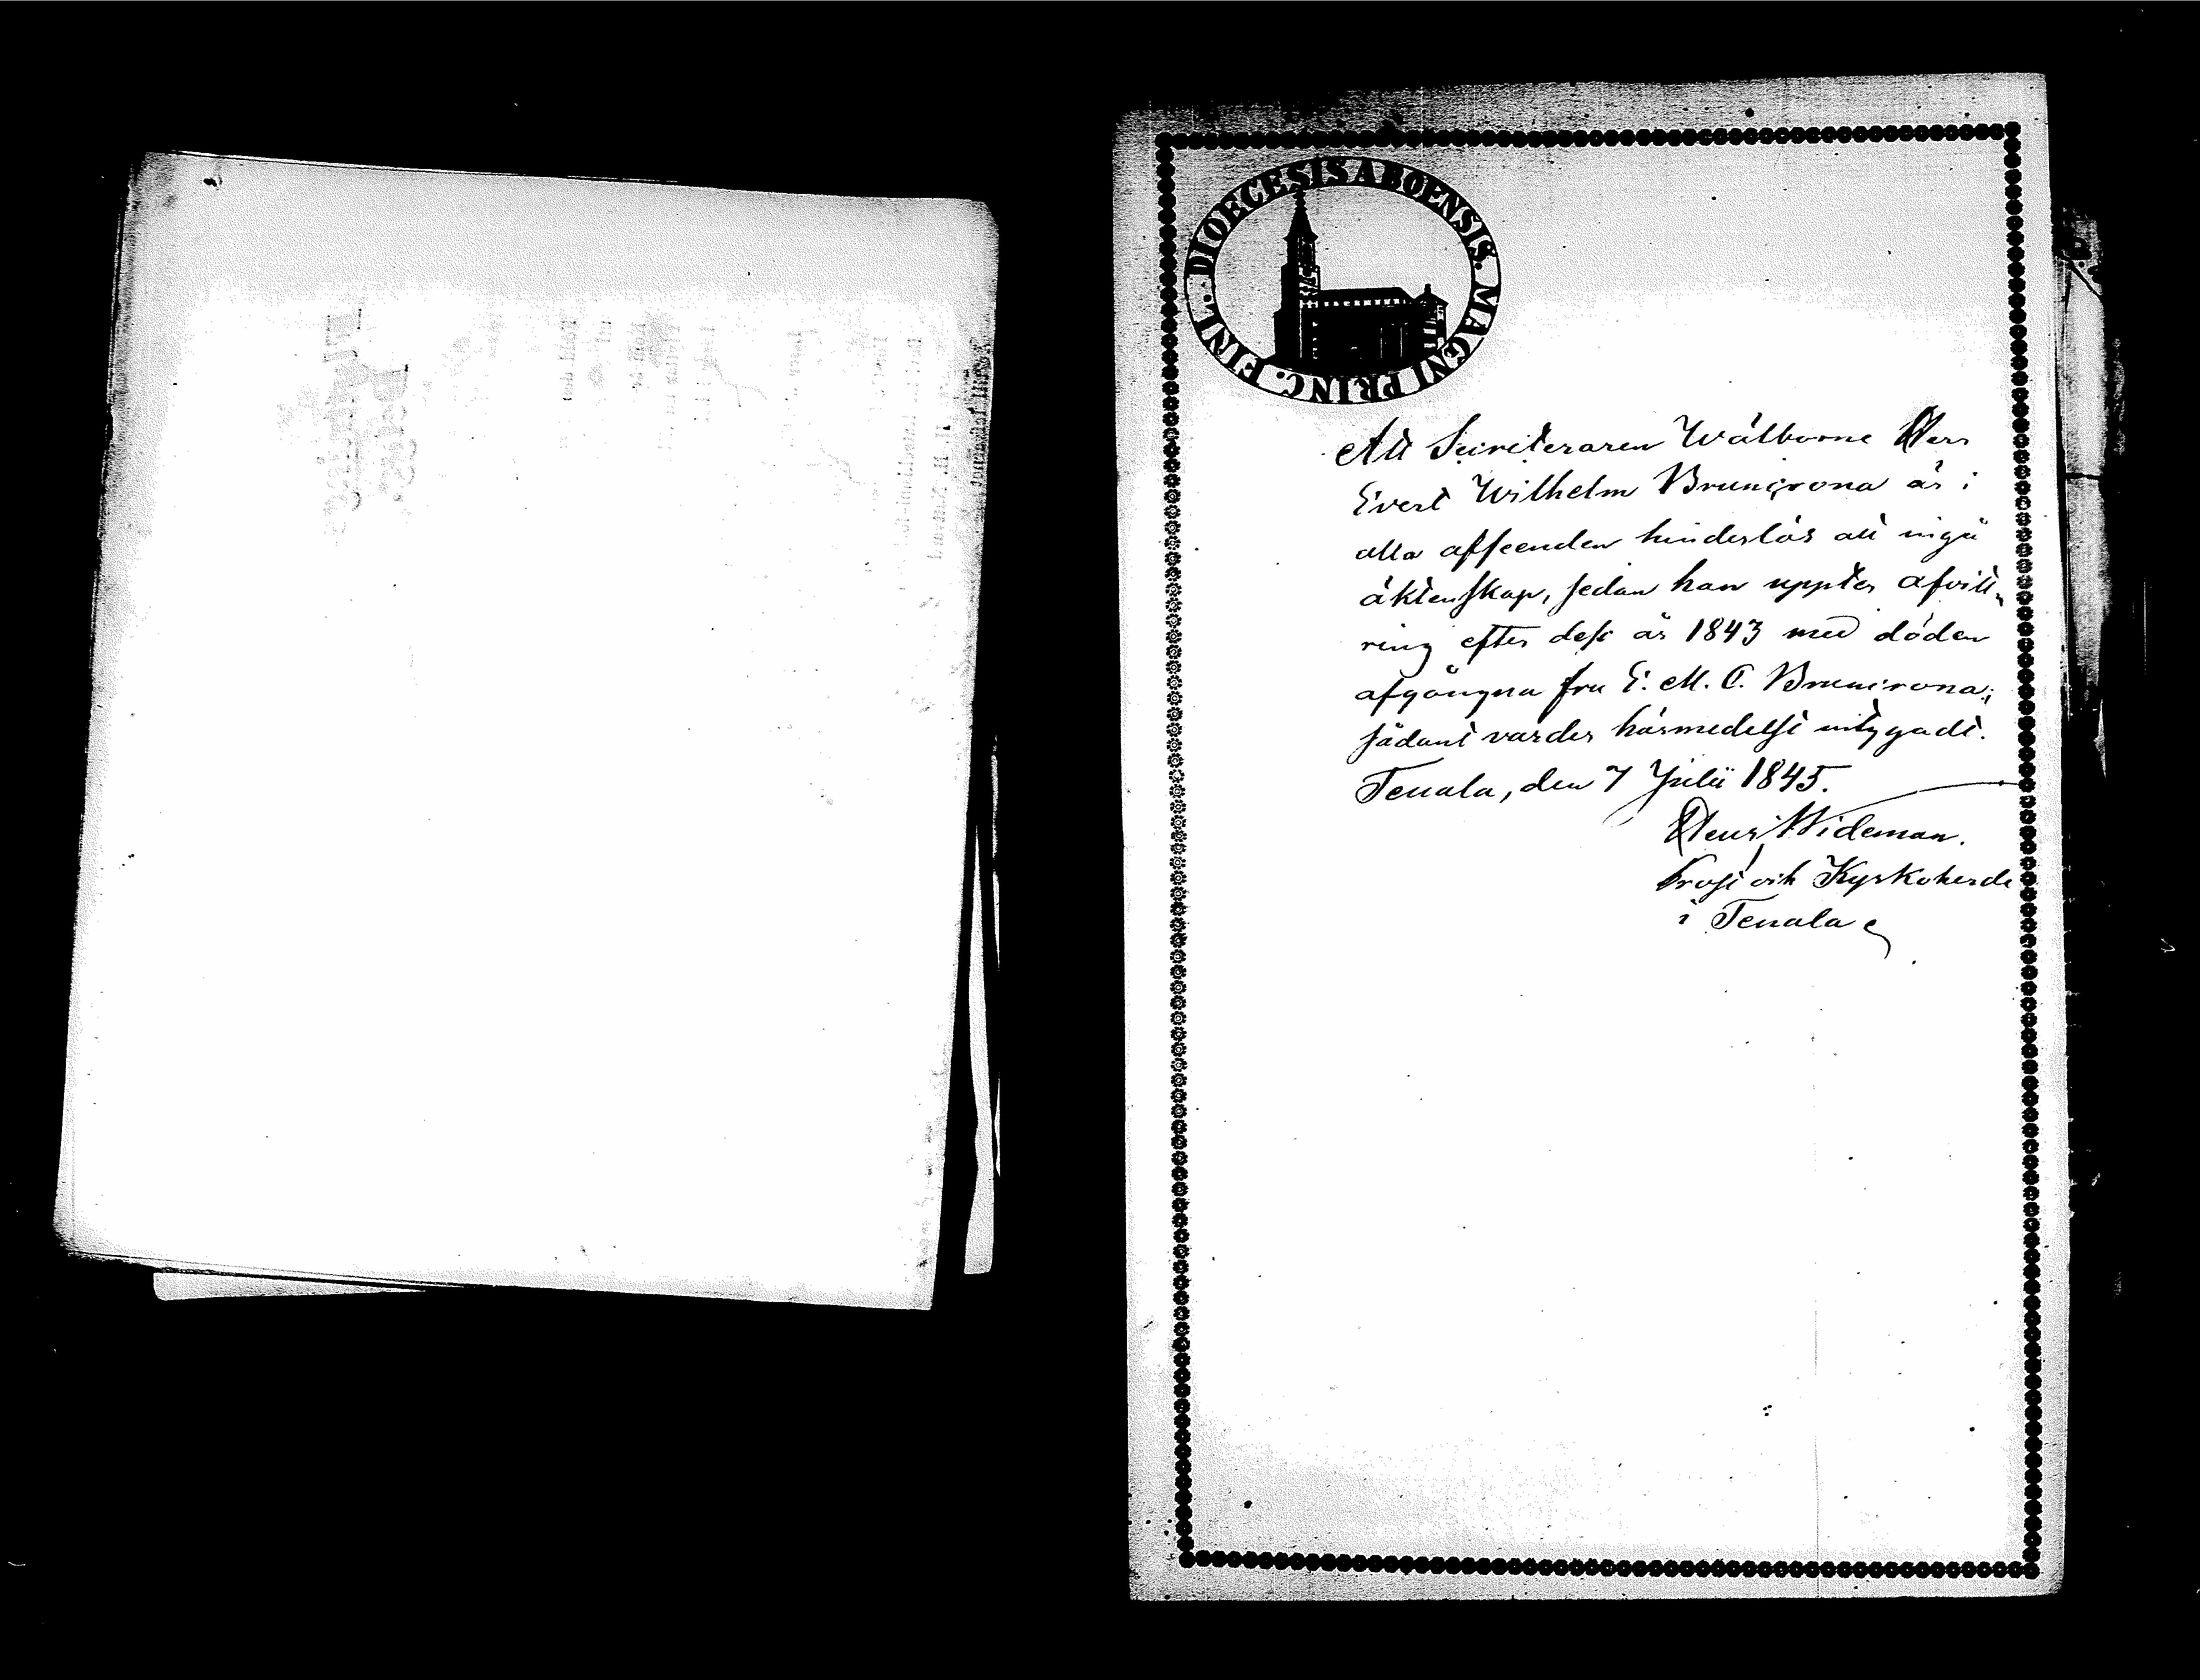 DIOECESIS ABOENSIS. MAGNI PRINC. FINL.
Att Secreteraren Wälborne Herr
Evert Wilhelm Bruncrona är i
alla afseenden hinderlös att ingå
äktenskap, sedan han uppter afvitt-
ring efter dess år 1843 med döden
afgångna fru E. M. C. Bruncrona;
sådant varder härmedelst intygadt.
Tenala, den 7 Julii 1845.
Henr. Wideman.
Prost och Kyrkoherde
i Tenala